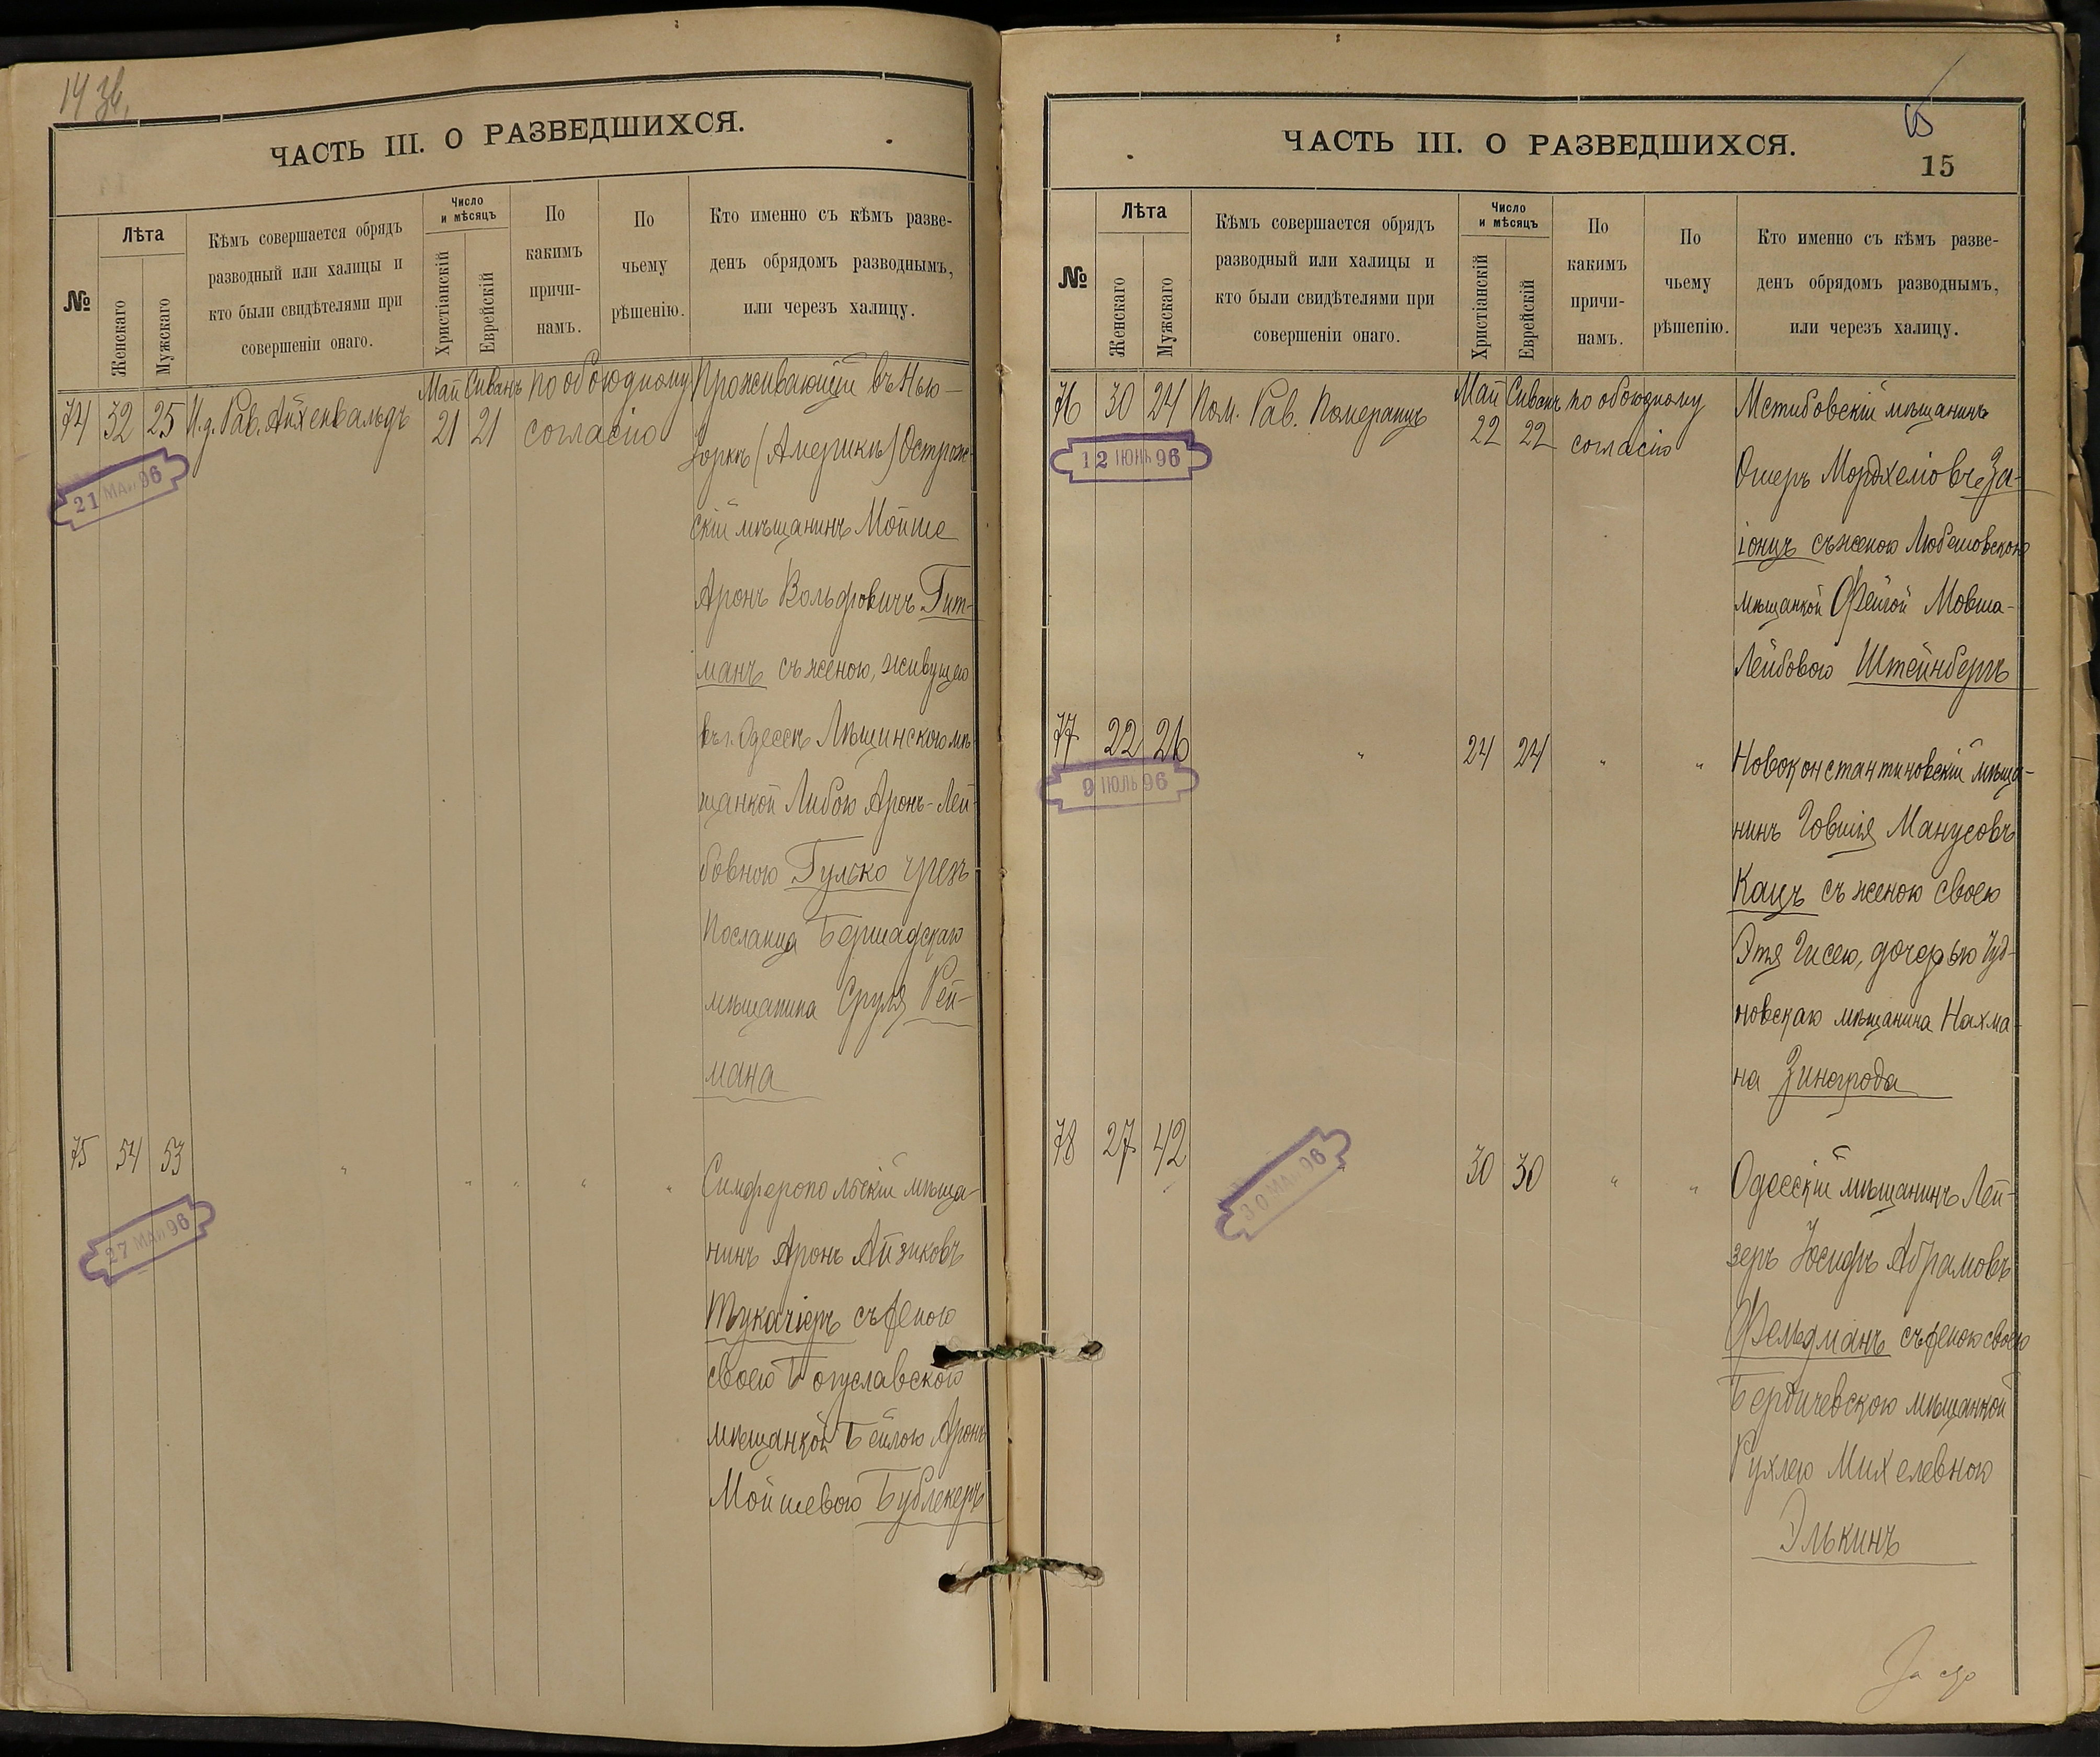 14 зв.
ЧАСТЬ III. О РАЗВЕДШИХСЯ.
№
Лѣта
Женскаго
Мужскаго
Кѣмъ совершается обрядъ
разводный или халицы и
кто были свидѣтелями при
совершеніи онаго.
Число
и мѣсяцъ
Христіанскій
Еврейскій
По
какимъ
причи-
намъ.
По
чьему
рѣшенію.
Кто именно съ кѣмъ разве-
денъ обрядомъ разводнымъ,
или черезъ халицу.
74 32 25 И.д. Рав. Айхенвальдъ
Май Сиванъ
21 21
по обоюдному
согласію
Проживающій въ Нью-
Іоркѣ (Америкѣ) Острож-
скій мѣщанинъ Мойше
Аронъ Вольфовичъ Гит-
манъ съ женою, живущею
въ г. Одессѣ мѣ-
щанкой Либою Аронъ-Лей-
бовною Гулько чрезъ
Посланца Бершадскаго
мѣщанина Сруля Рей-
мана
21 МАЙ 96
75 54 53 " " " " "
Симферопольскій мѣща-
нинъ Аронъ Айзиковъ
Тукачіеръ съ женою
своею Богуславскою
мѣщанкой Бейлою Аронъ
Мойшевою Бублекеръ
27 МАЙ 96
15
ЧАСТЬ III. О РАЗВЕДШИХСЯ.
15
№
Лѣта
Женскаго
Мужскаго
Кѣмъ совершается обрядъ
разводный или халицы и
кто были свидѣтелями при
совершеніи онаго.
Число
и мѣсяцъ
Христіанскій
Еврейскій
По
какимъ
причи-
намъ.
По
чьему
рѣшенію.
Кто именно съ кѣмъ разве-
денъ обрядомъ разводнымъ,
или черезъ халицу.
76 30 24 Пом. Рав. Померанцъ
Май Сиванъ
22 22
по обоюдному
согласію
Мстибовскій мѣщанинъ
Ошеръ Мордхеліовъ За-
іонцъ съ женою Любешовскою
мѣщанкой Фейгой Мовша-
Лейбовою Штейнбергъ
12 ІЮНЬ 96
77 22 26 " 24 24 " "
Новоконстантиновскій мѣща-
нинъ Іовшія Манусовъ
Кацъ съ женою своею
Этя Гисею, дочерью Чуд-
новскаго мѣщанина Нахма-
на Зинграда
9 ІЮЛЬ 96
78 27 42 " 30 30 " "
Одесскій мѣщанинъ Лей-
зеръ Іосифъ Абрамовъ
Фельдманъ съ женою своею
Бердичевскою мѣщанкой
Рухлею Михелевною
Элькинъ
30 МАЙ 96